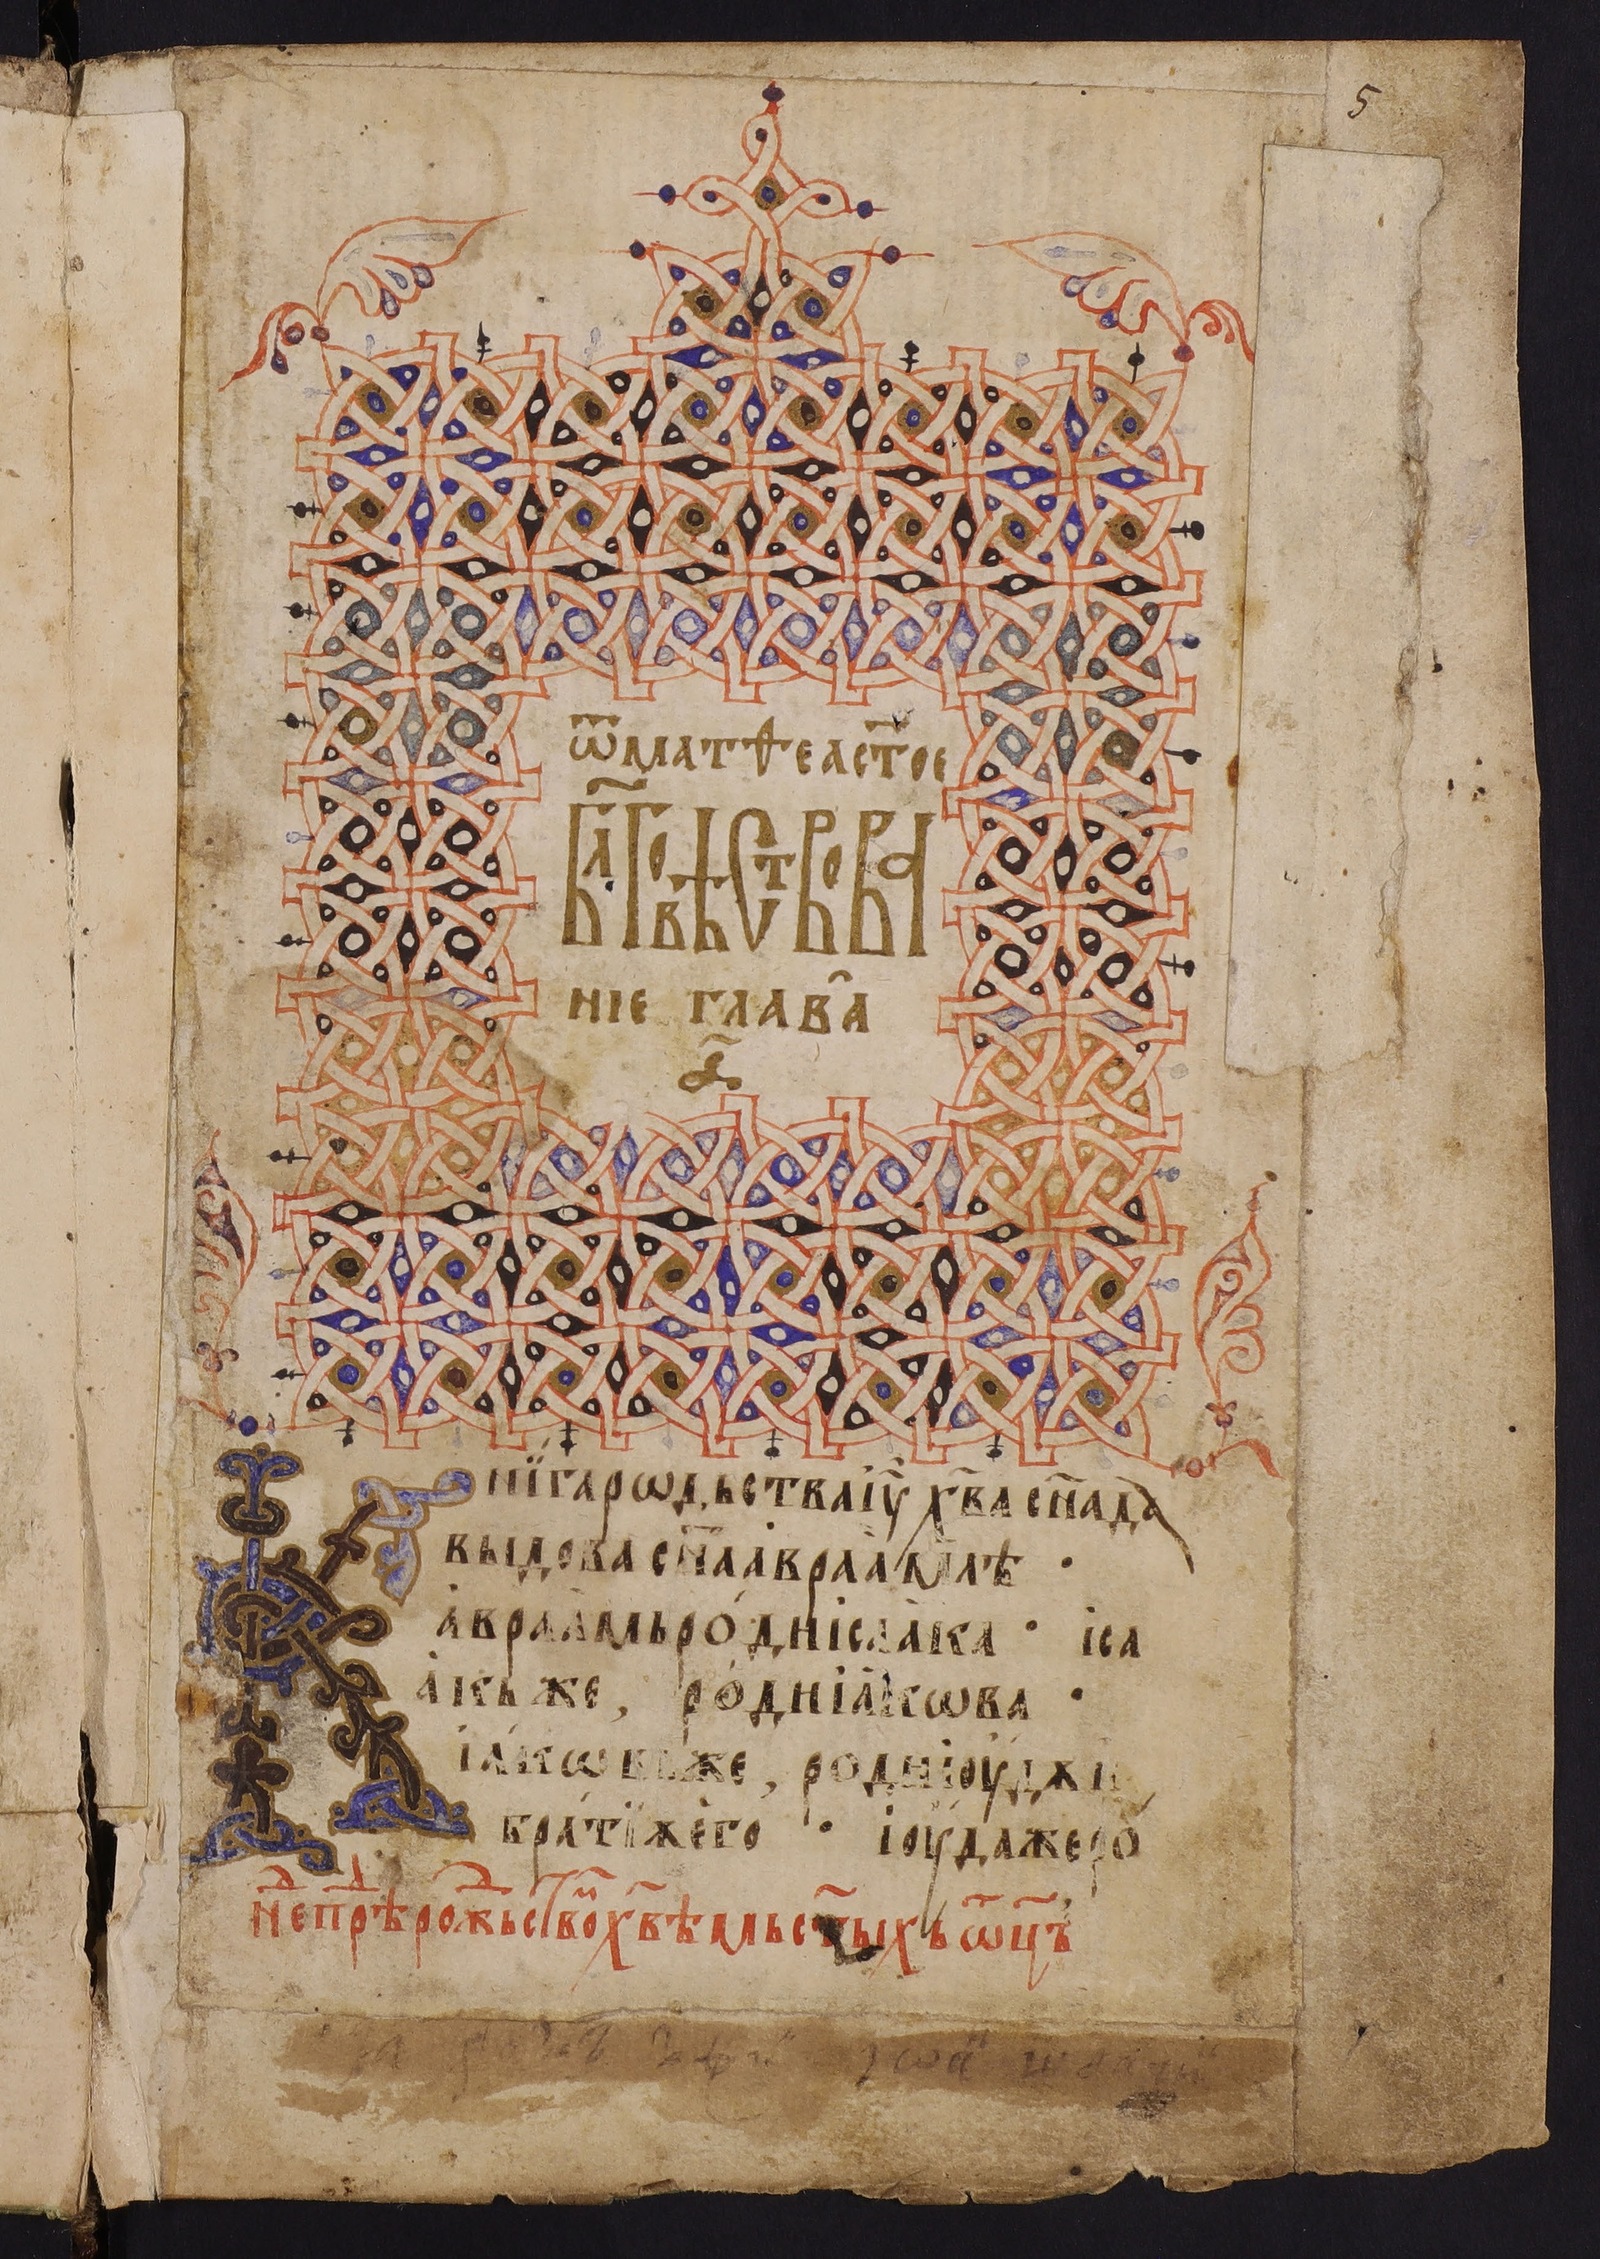 5
ѿ матѳеа ст҃ое
бл҃говѣствова
нїе глава
а҃
Книга рѡдьства іу҃ хв҃а сн҃а да
выдова сн҃а авраамлѣ ·
авраамь роди исаака · іса
акь же, роди іакѡва ·
іакѡвь же, роди іоуд
братїѫ его · іоуда же ро
не пⷣрⷣѣ рожьствоⷨ хв҃ѣмь ст҃ыхь ѿц҃ъ